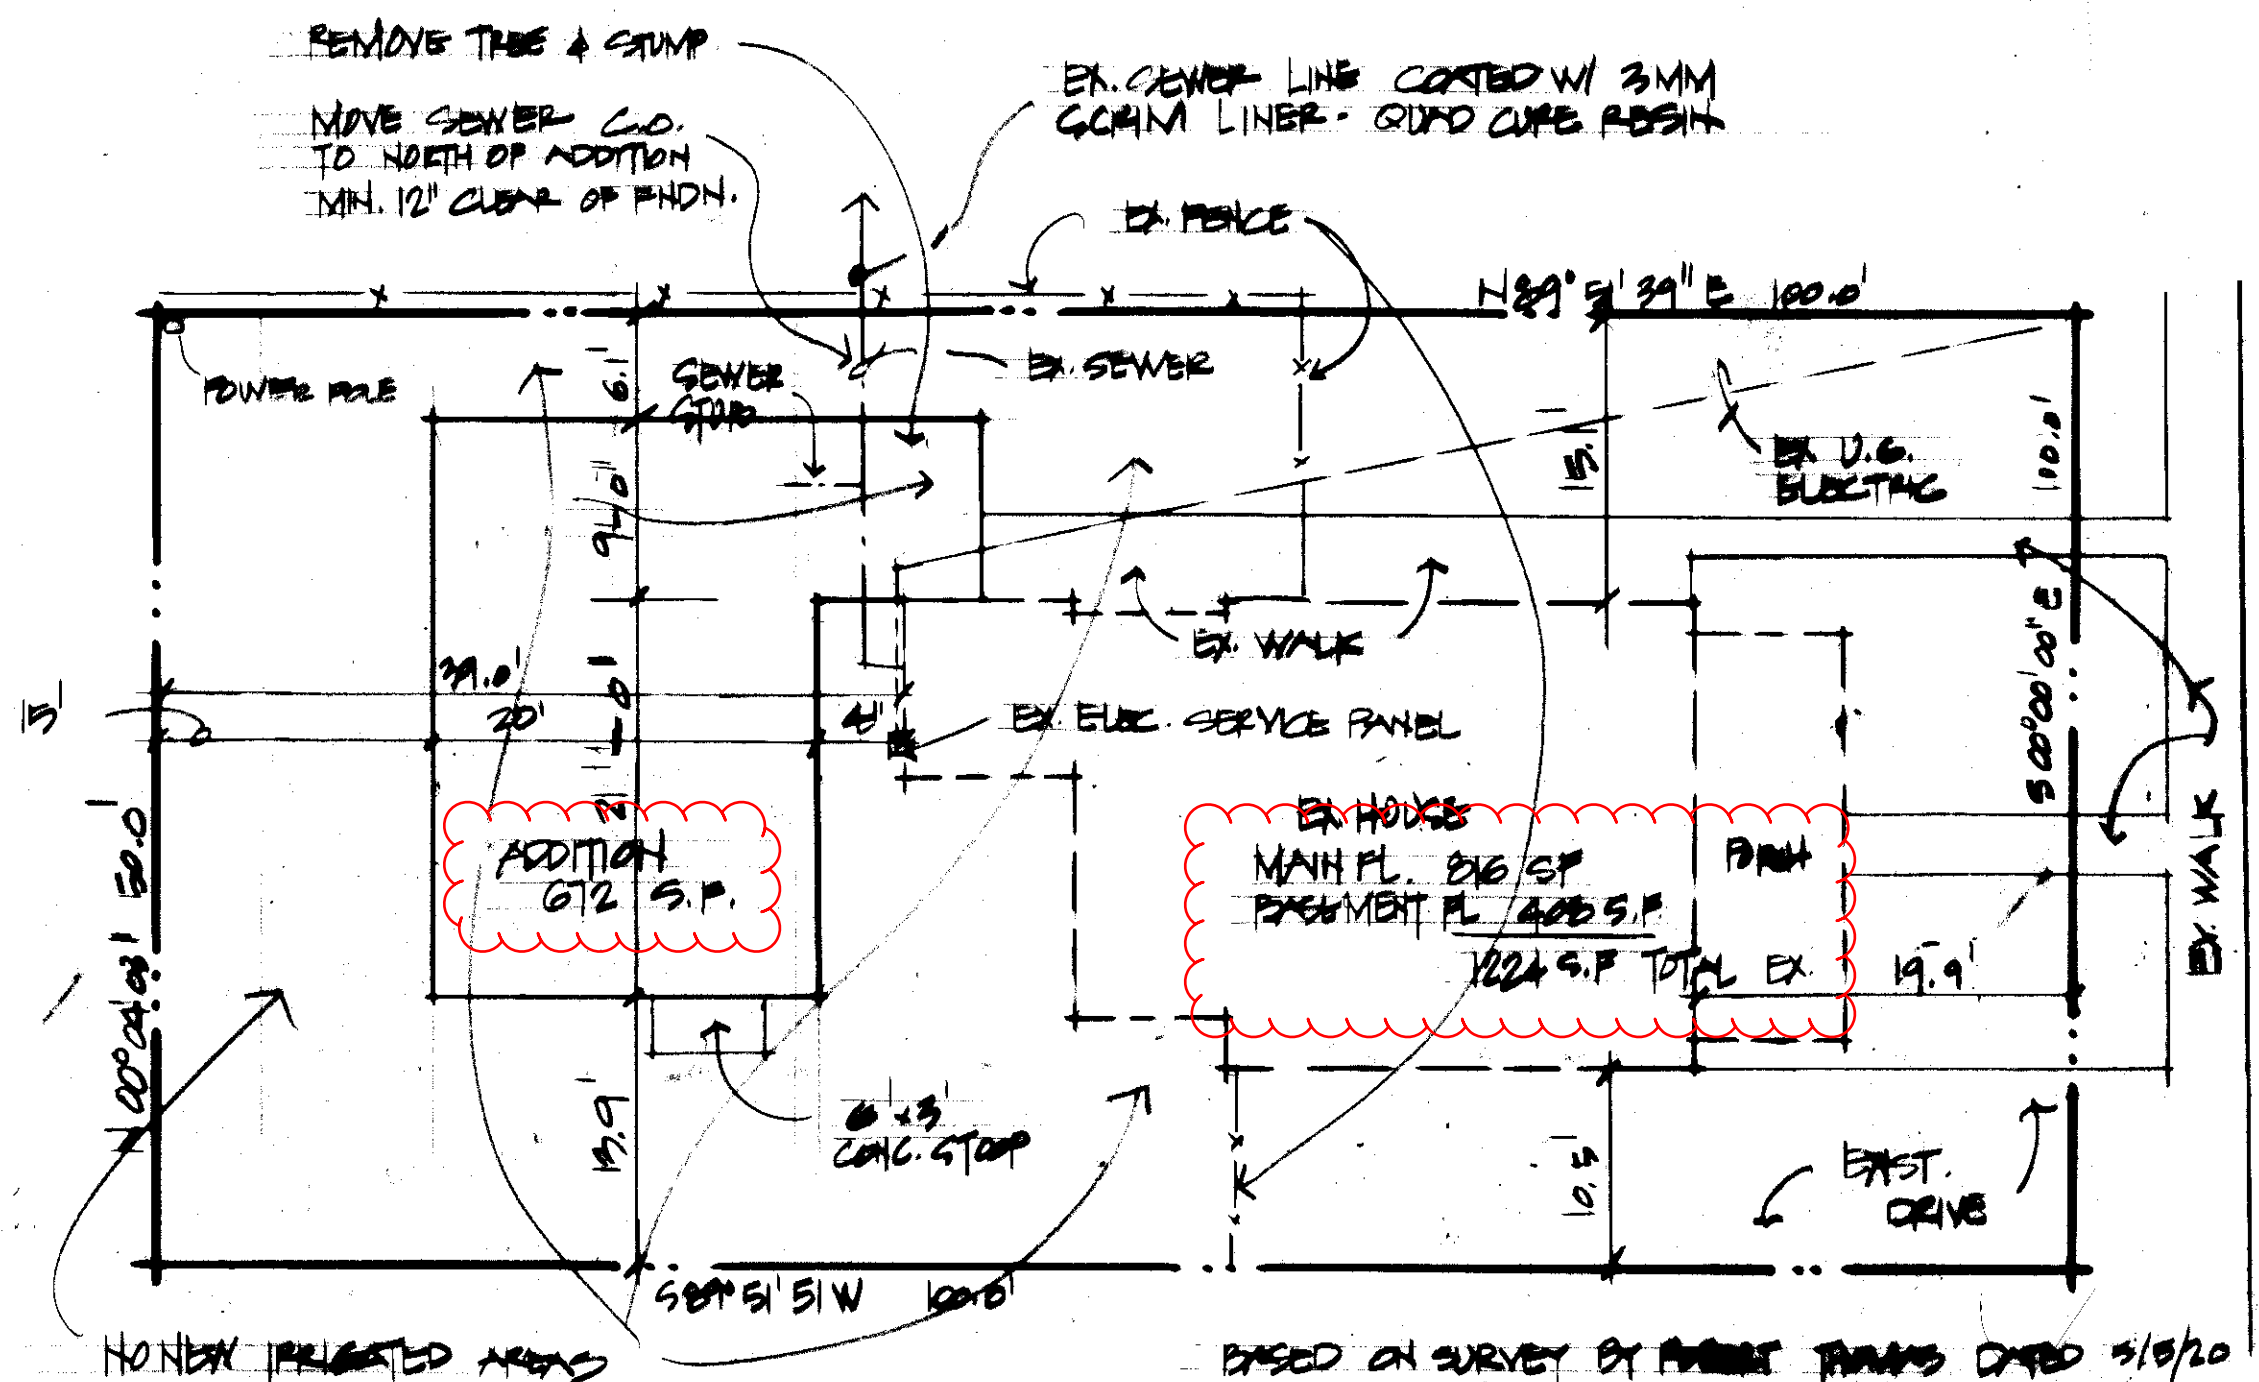 REMOVE TREE & STUMP
MOVE SEWER C.O.
TO NORTH OF ADDITION
MIN. 12" CLEAR OF FNDN.
EX. SEWER LINE COATED W/ 3MM
SCRIM LINER - QUAD CURE RESIN
EX. FENCE
N 89° 51' 39" E 100.0'
POWER POLE
6.1'
SEWER
STUB
EX. SEWER
15.1'
EX U.G.
ELECTRIC
10.0'
9'-0"
EX. WALK
S 00°00'00" E
39.0'
20'
4'
15'
21'-0"
EX. ELEC. SERVICE PANEL
ADDITION
672 S.F.
EX HOUSE
MAIN FL. 816 SF
BASEMENT FL 408 S.F
1224 S.F TOTAL EX.
PORCH
19.9'
EX. WALK
N 00°04'03" 50.0'
13.9'
6' x 3'
CONC. STOOP
10.5'
EAST.
DRIVE
S 89° 51' 51 W 100.0'
NO NEW IRRIGATED AREAS
BASED ON SURVEY BY DATED 3/5/20